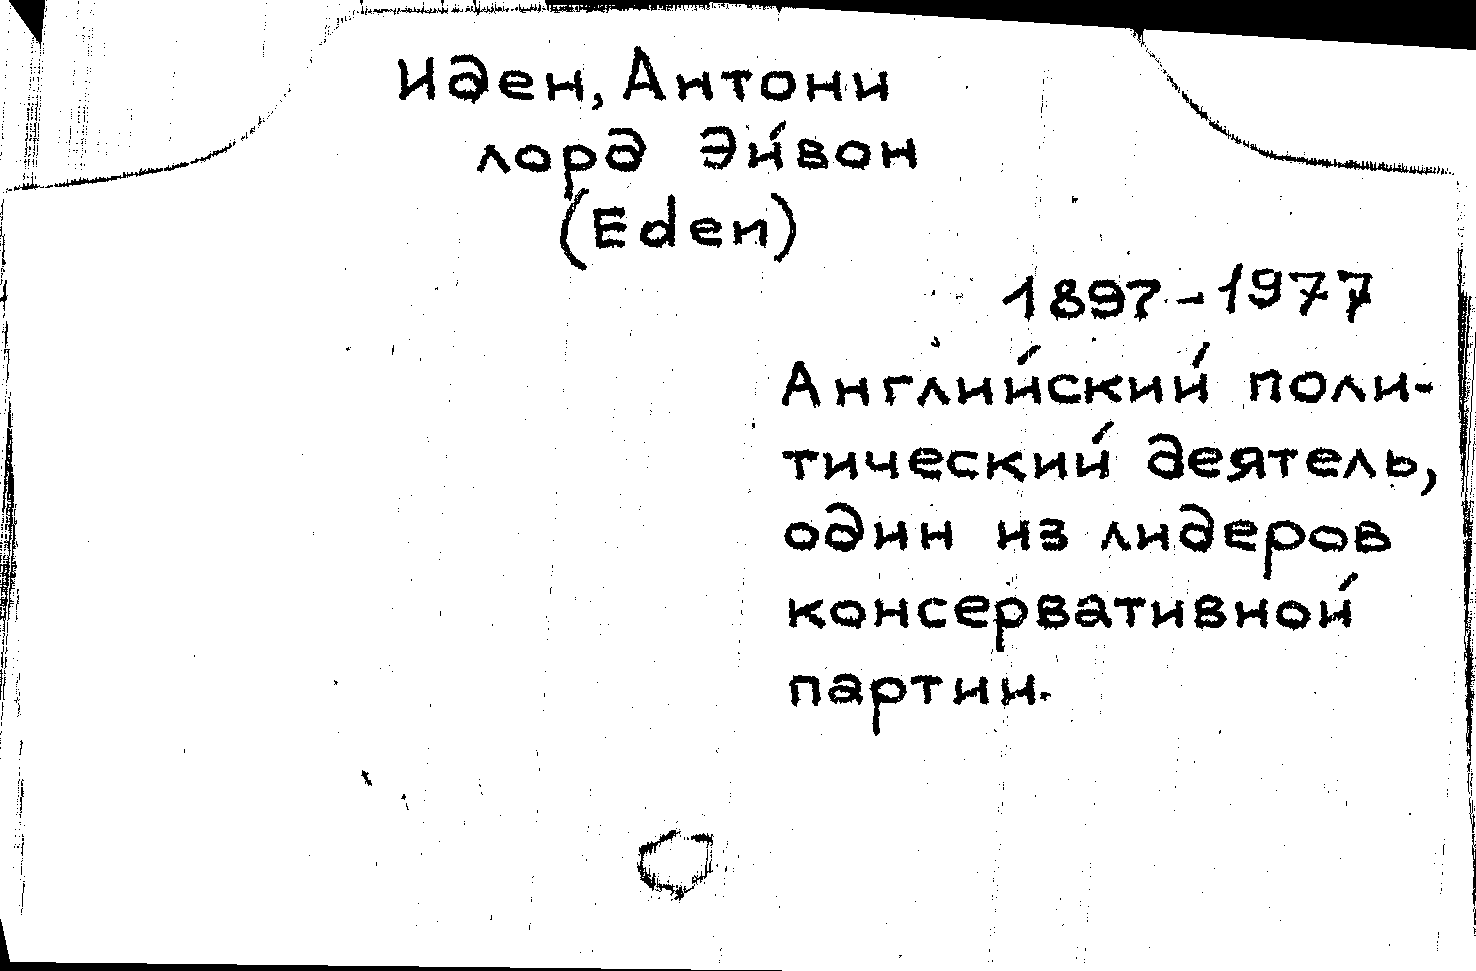 Иден, Антони
лорд Эйвон
(Eden)
1897-1977
Английский поли-
тический деятель,
один из лидеров
консервативной
партии.